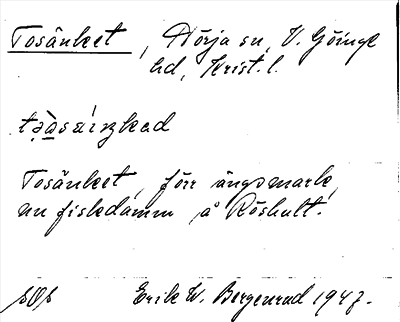 Tosänket, Nörja sn, V. Göinge
hd, Krist. l.
Tosänket, förr ängsmark,
nu fiskdamm å Röshult.
Erik W. Bergenrud 1947.